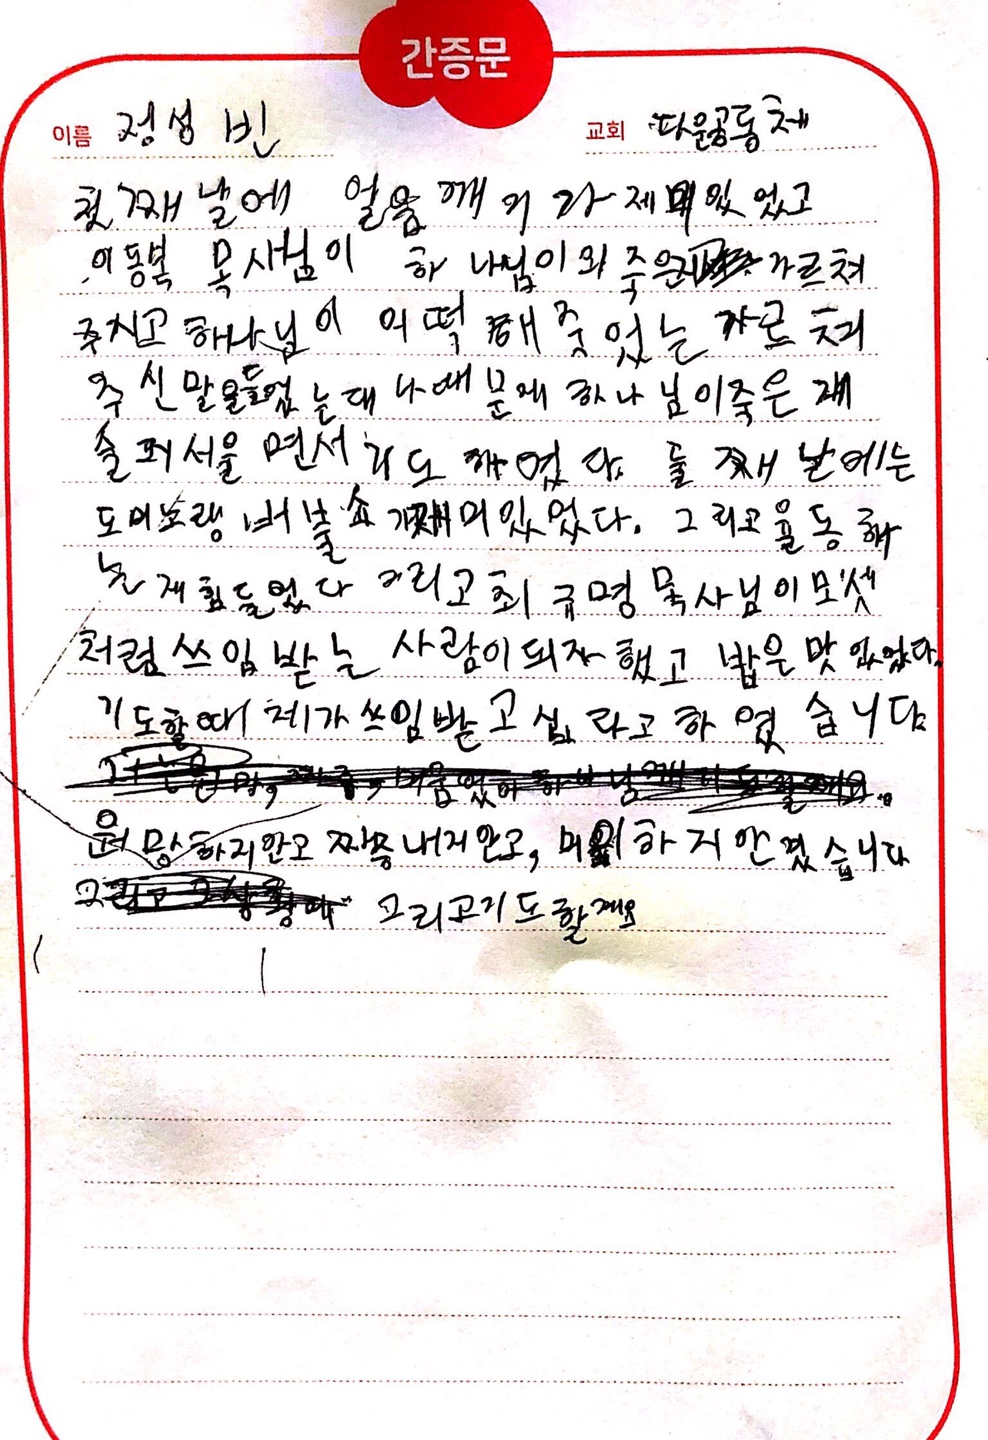 간증문
이름 정성빈 교회 다운공동체
첫째날에 얼음깨기가 재미있었고
이동복 목사님이 하나님이 왜 죽은 가르쳐
주시고 하나님이 어떡해 죽었는 가르쳐
주신 말을들었는대 나때문에 하나님이죽은게
슬퍼서울면서 기도하였다. 둘째날에는
도미노랑 버블쇼가 재미있었다. 그리고 율동해
는 재 힘들었다 그리고 최규명 목사님이 모셋
처럼 쓰임받는 사람이되자 했고 밥은 맛있었다.
기도할때 제가쓰임받고 십다라고 하였습니다
원망하지안고 짜증내지안고, 미워하지안겠습니다
그리고 그상황에 그리고기도할게요